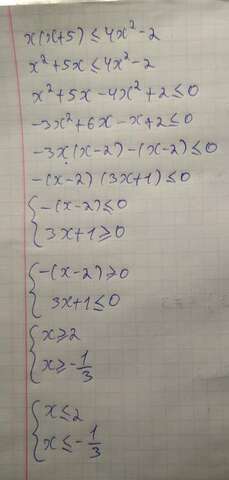 x(x+5) ≤ 4x²-2
x²+5x ≤ 4x²-2
x²+5x-4x²+2 ≤ 0
-3x²+6x-x+2 ≤ 0
-3x(x-2)-(x-2) ≤ 0
-(x-2)(3x+1) ≤ 0
{ -(x-2) ≤ 0
3x+1 ≥ 0
{ -(x-2) ≥ 0
3x+1 ≤ 0
{ x ≥ 2
x ≥ -1/3
{ x ≤ 2
x ≤ -1/3